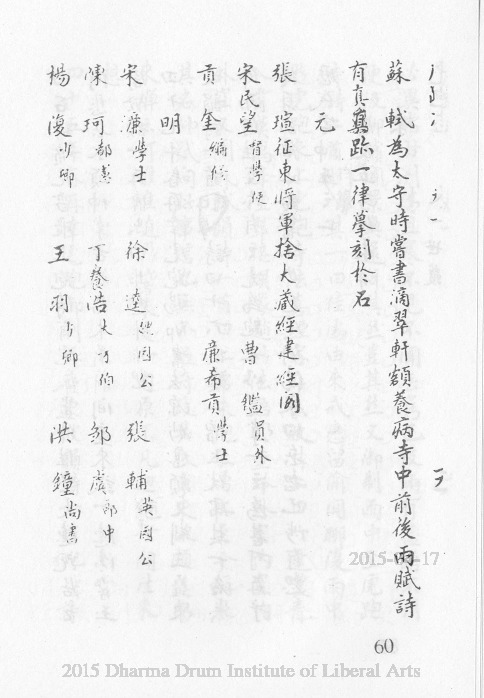 蘇軾為太守時嘗書滴翠軒額養病寺中前後兩賦詩
有真寫跡一律摹刻於石
元
張瑄征東將軍捨大藏經建經閣
宋民望督學使 曹鑑員外
貢奎編修 廉希貢學士
明
宋濂學士 徐達魏國公 張輔英國公
陳珂都憲 丁養浩大方伯 鄒虞郎中
楊復少卿 王羽少卿 洪鐘尚書
2015-
-17
60
2015 Dharma Drum Institute of Liberal Arts